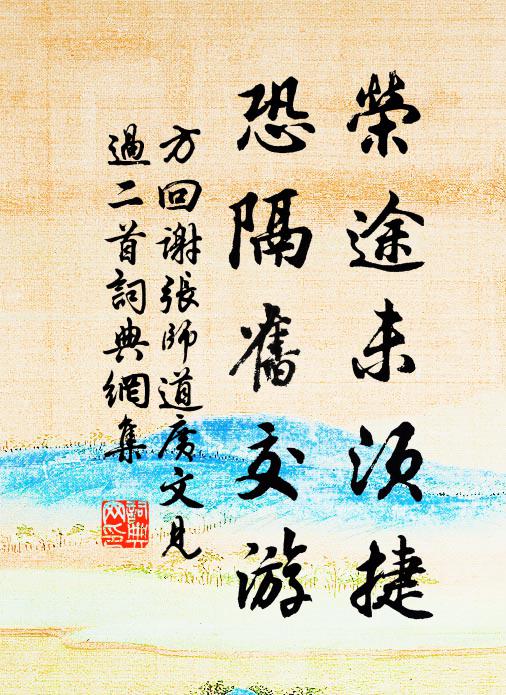 榮途未須捷
恐隔舊交游
方回谢張師道廣文見
過二首詞典網集
詞典
网印